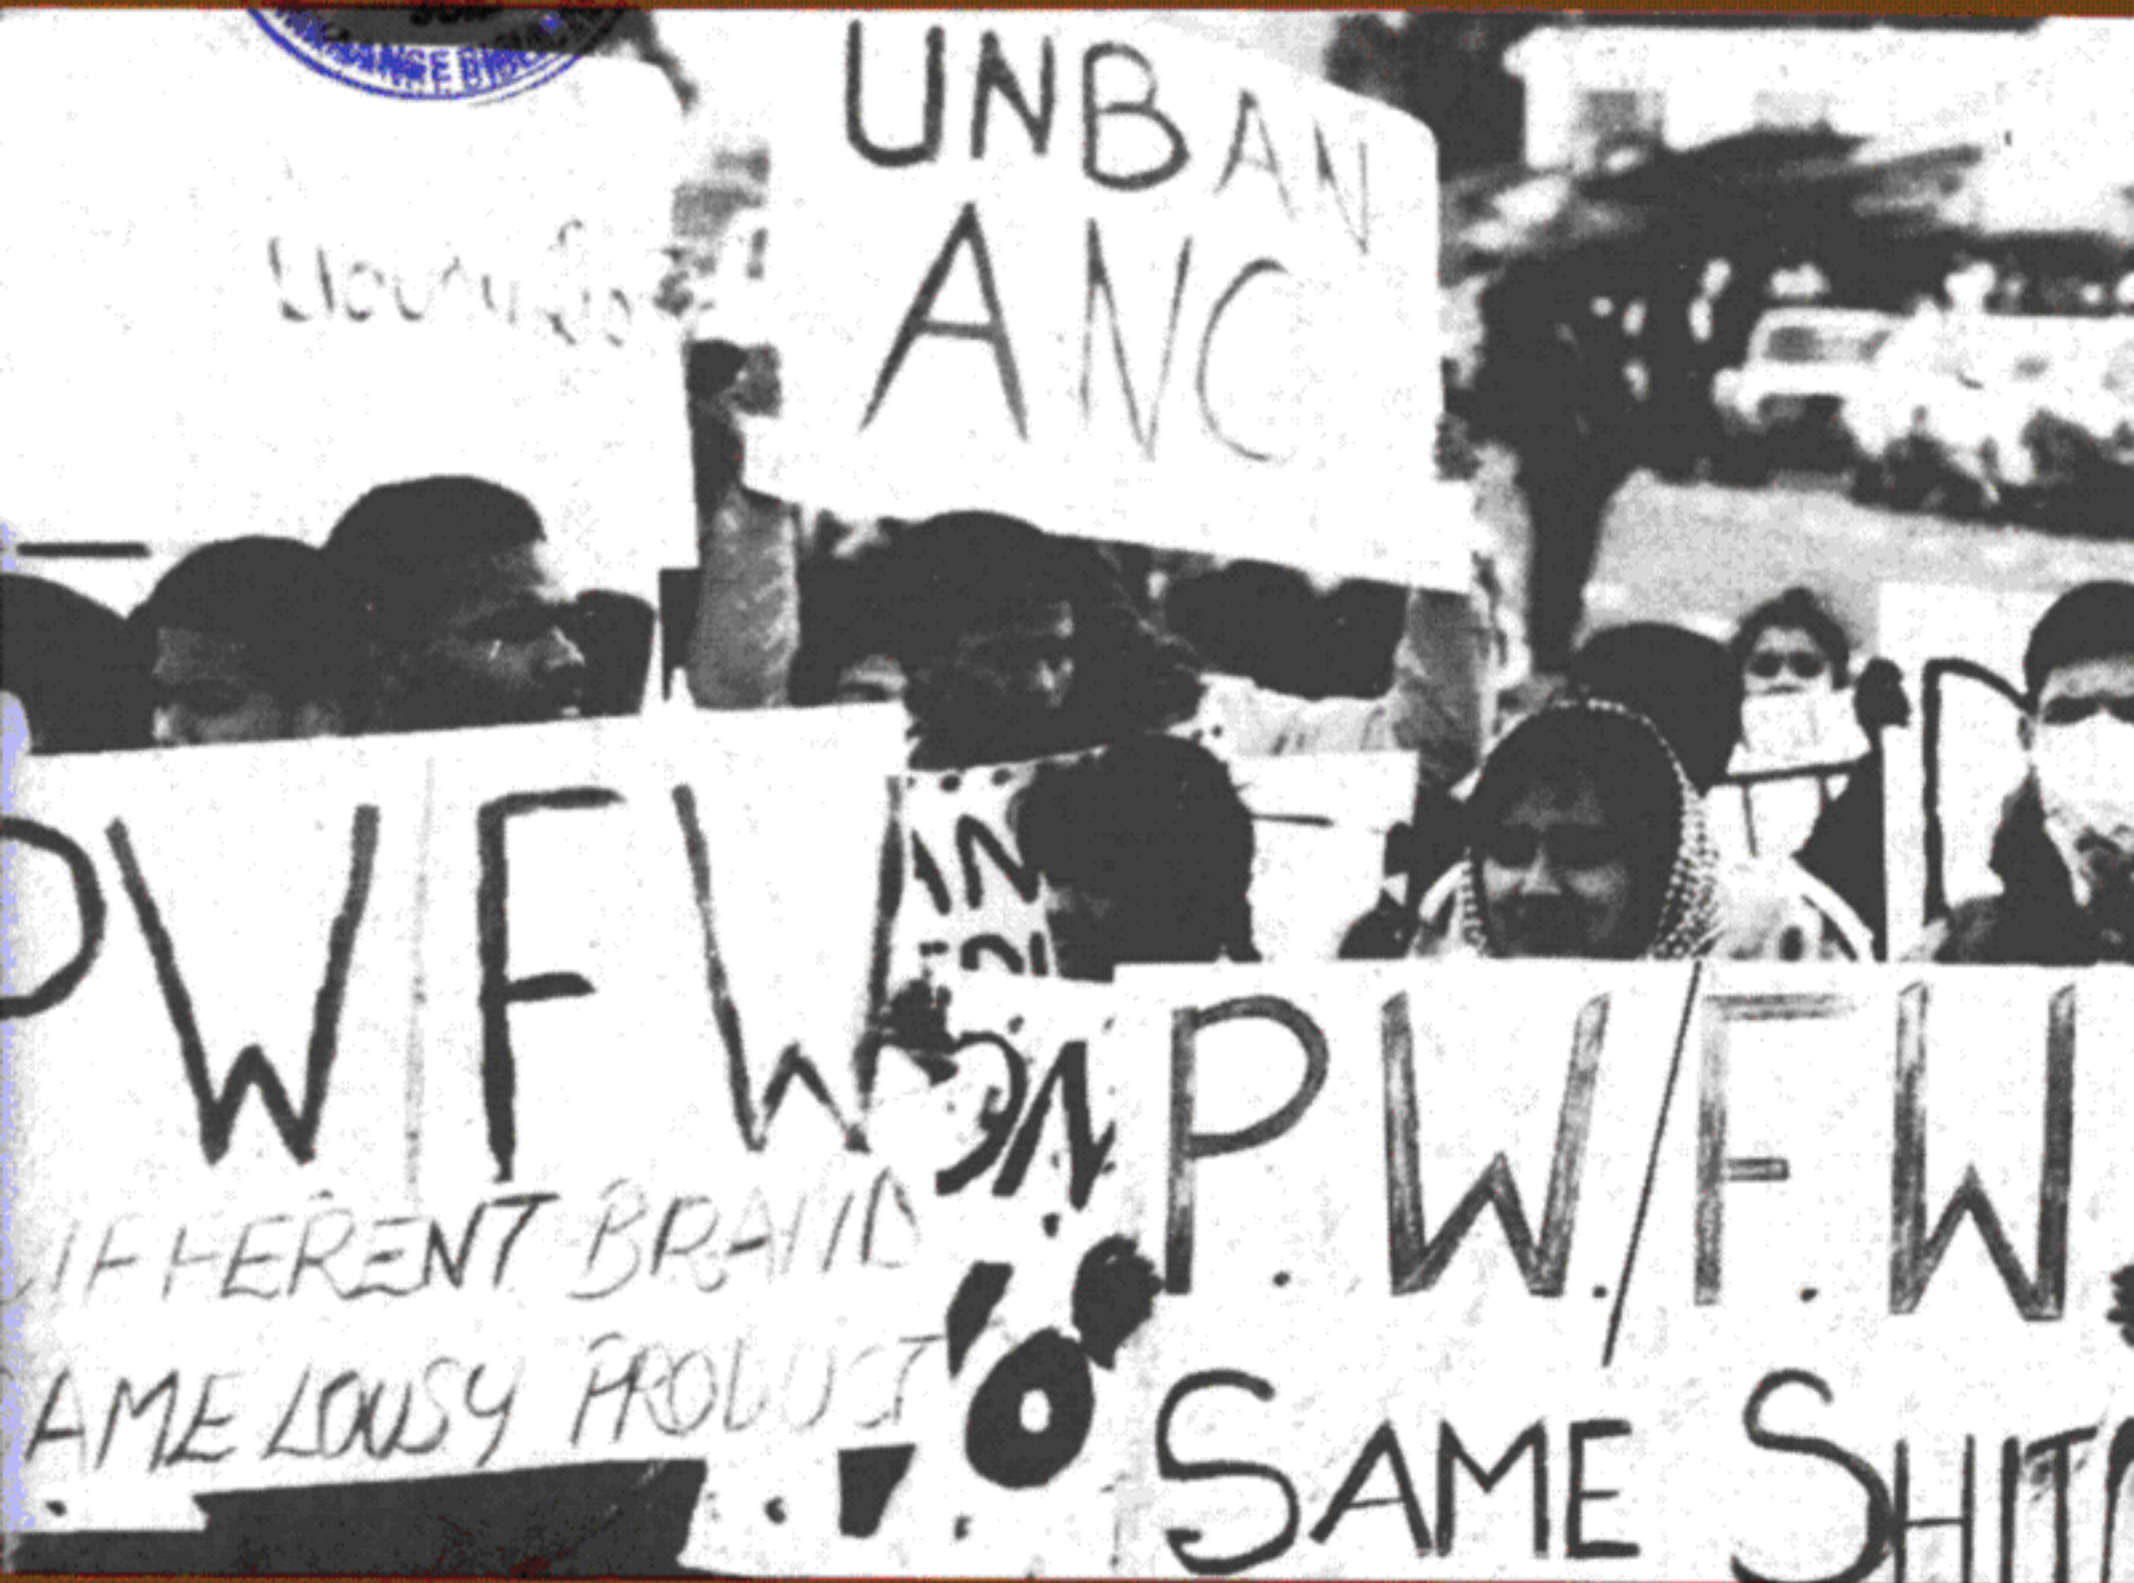 UNBAN
ANC
PWFW
IFFERENT BRAND
AME LOUSY PRODUCT
P.W./F.W.
SAME SHIT